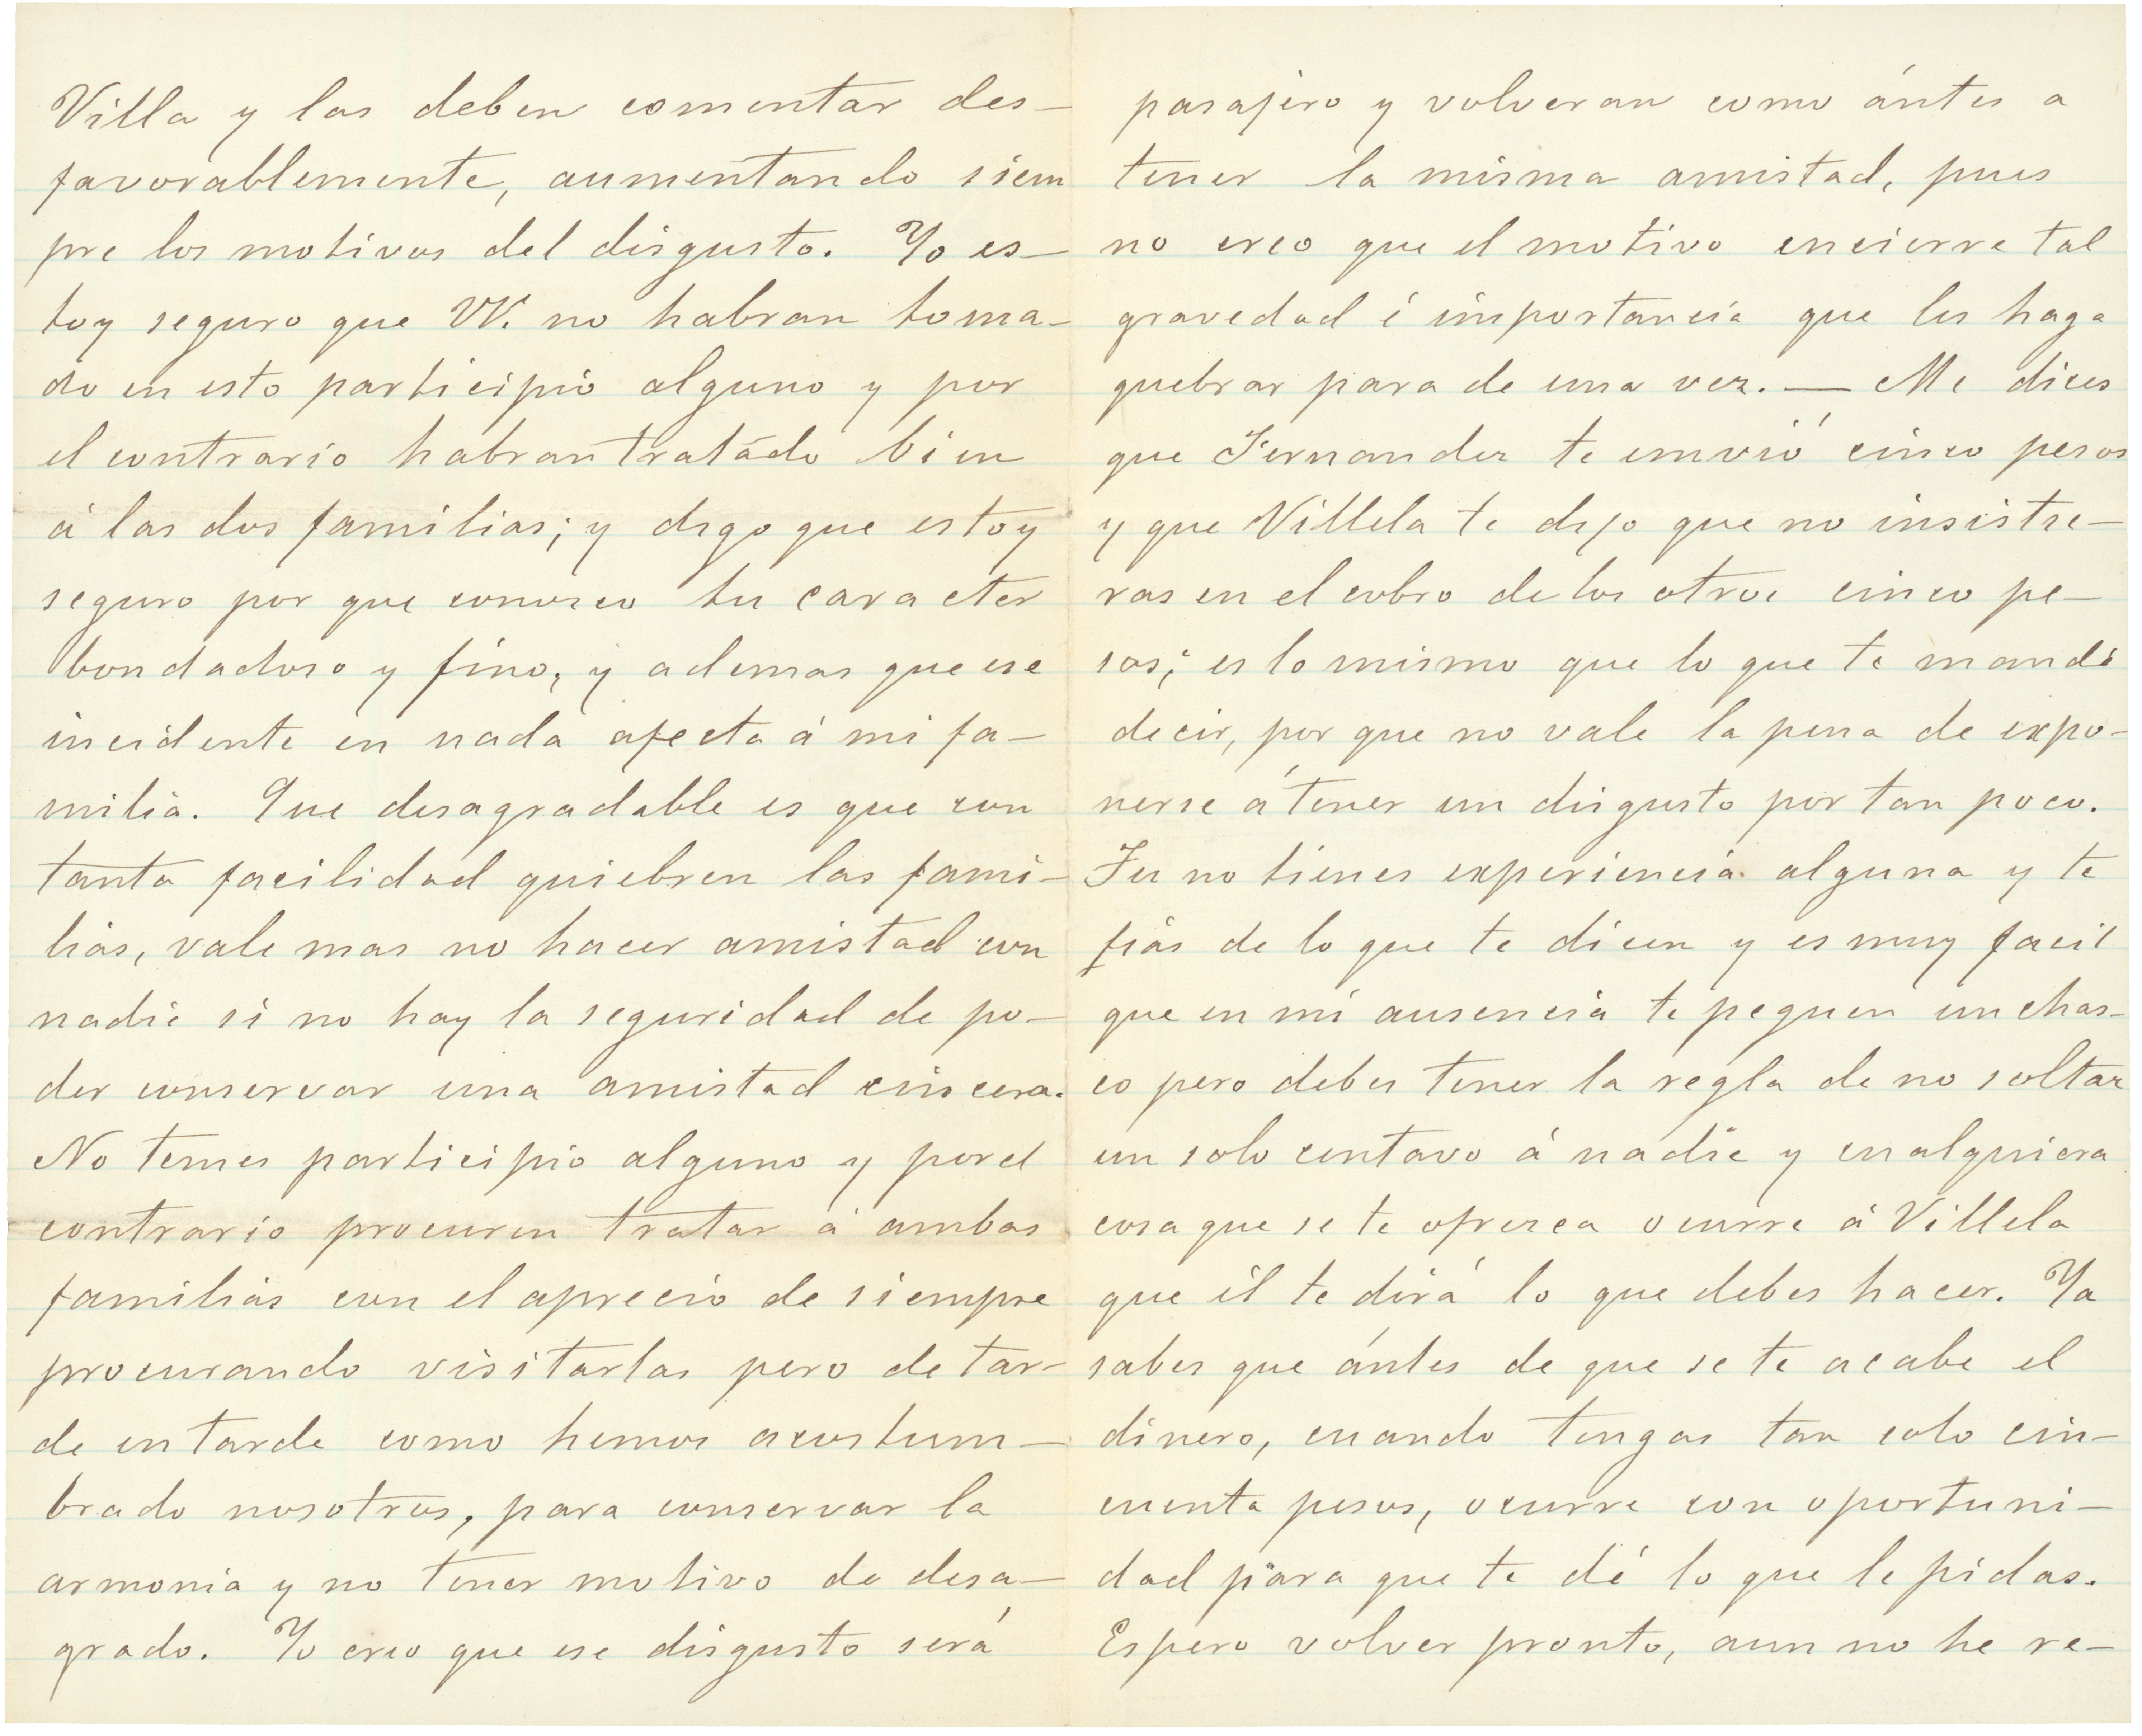 Villa y las deben comentar des-
favorablemente, aumentando siem
pre los motivos del disgusto. Yo es-
toy seguro que VV. no habran toma-
do en esto participio alguno y por
el contrario habran tratádo bien
á las dos familias; y digo que estoy
seguro por que conosco tu caracter
bondadoso y fino, y ademas que ese
incidente en nada afecta á mi fa-
milia. Que desagradable es que con
tanta facilidad quiebren las fami-
lias, vale mas no hacer amistad con
nadie si no hay la seguridad de po-
der conservar una amistad cincera.
No temes participio alguno y por el
contrario procuren tratar á ambas
familias con el aprecio de siempre
procurando visitarlas pero de tar-
de en tarde como hemos acostum-
brado nosotros, para conservar la
armonia y no tener motivo de desa-
grado. Yo creo que ese disgusto será
pasajero y volveran como ántes a
tener la misma amistad, pues
no creo que el motivo encierre tal
gravedad é importancia que les haga
quebrar para de una vez. — Me dices
que Fernandez te envió cinco pesos
y que Villela te dijo que no insistie-
ras en el cobro de los otros cinco pe-
sos; es lo mismo que lo que te mandé
decir, por que no vale la pena de expo-
nerse á tener un disgusto por tan poco.
Tu no tienes experiencia alguna y te
fias de lo que te dicen y es muy facil
que en mi ausencia te peguen un chas-
co pero debes tener la regla de no soltar
un solo centavo á nadie y cualquiera
cosa que se te ofresca ocurre á Villela
que él te dirá lo que debes hacer. Ya
sabes que ántes de que se te acabe el
dinero, cuando tengas tan solo cin-
cuenta pesos, ocurre con oportuni-
dad para que te dé lo que le pidas.
Espero volver pronto, aun no he re-